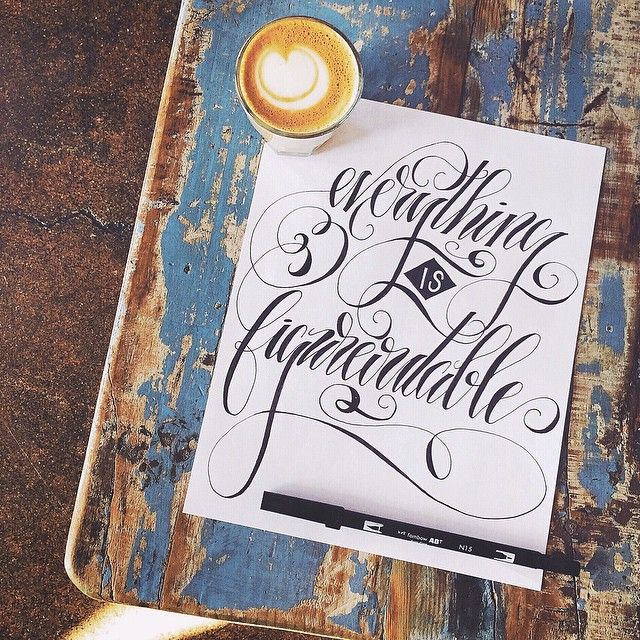 everything
IS
figureoutable
Tombow ABT N15